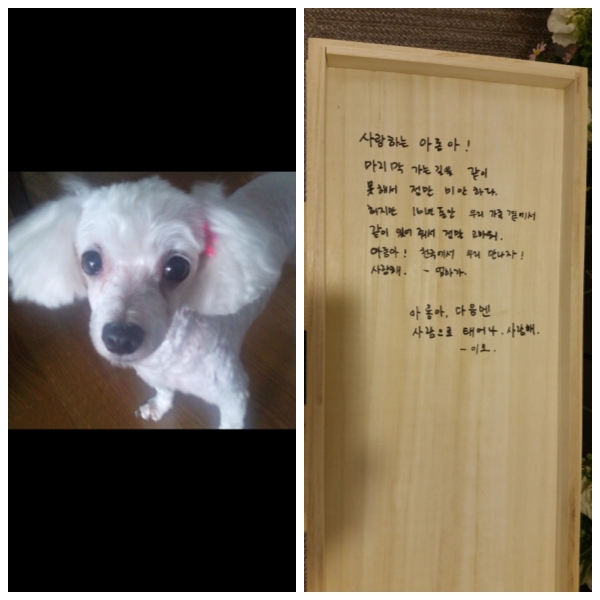 사랑하는 아롱아!
마지막 가는 길을 같이
못해서 정말 미안하다.
하지만 16년동안 우리 가족 곁에서
같이 있어 줘서 정말 고마워.
아롱아! 천국에서 우리 만나자!
사랑해. - 엄마가.
아롱아, 다음엔
사람으로 태어나. 사랑해.
- 이모.